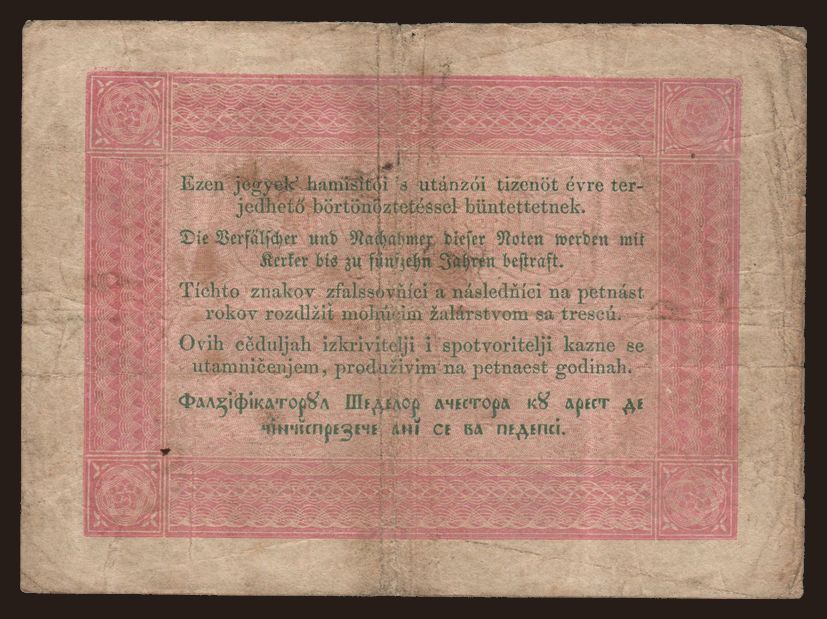 Ezen jegyek' hamisítói 's utánzói tizenöt évre ter-
jedhető börtönöztetéssel büntettetnek.
Die Verfälscher und Nachahmer dieser Noten werden mit
Kerker bis zu fünfzehn Jahren bestraft.
Tíchto znakov zfalssovňíci a následňíci na petnást
rokov rozdlžit mohúcim žalárstvom sa trescú.
Ovih cĕduljah izkrivitelji i spotvoritelji kazne se
utamničenjem, produživim na petnaest godinah.
Фалзіфікаторꙋл Шеделор ачестора кꙋ арест де
чінчіспрезече ані се ва педепсі.